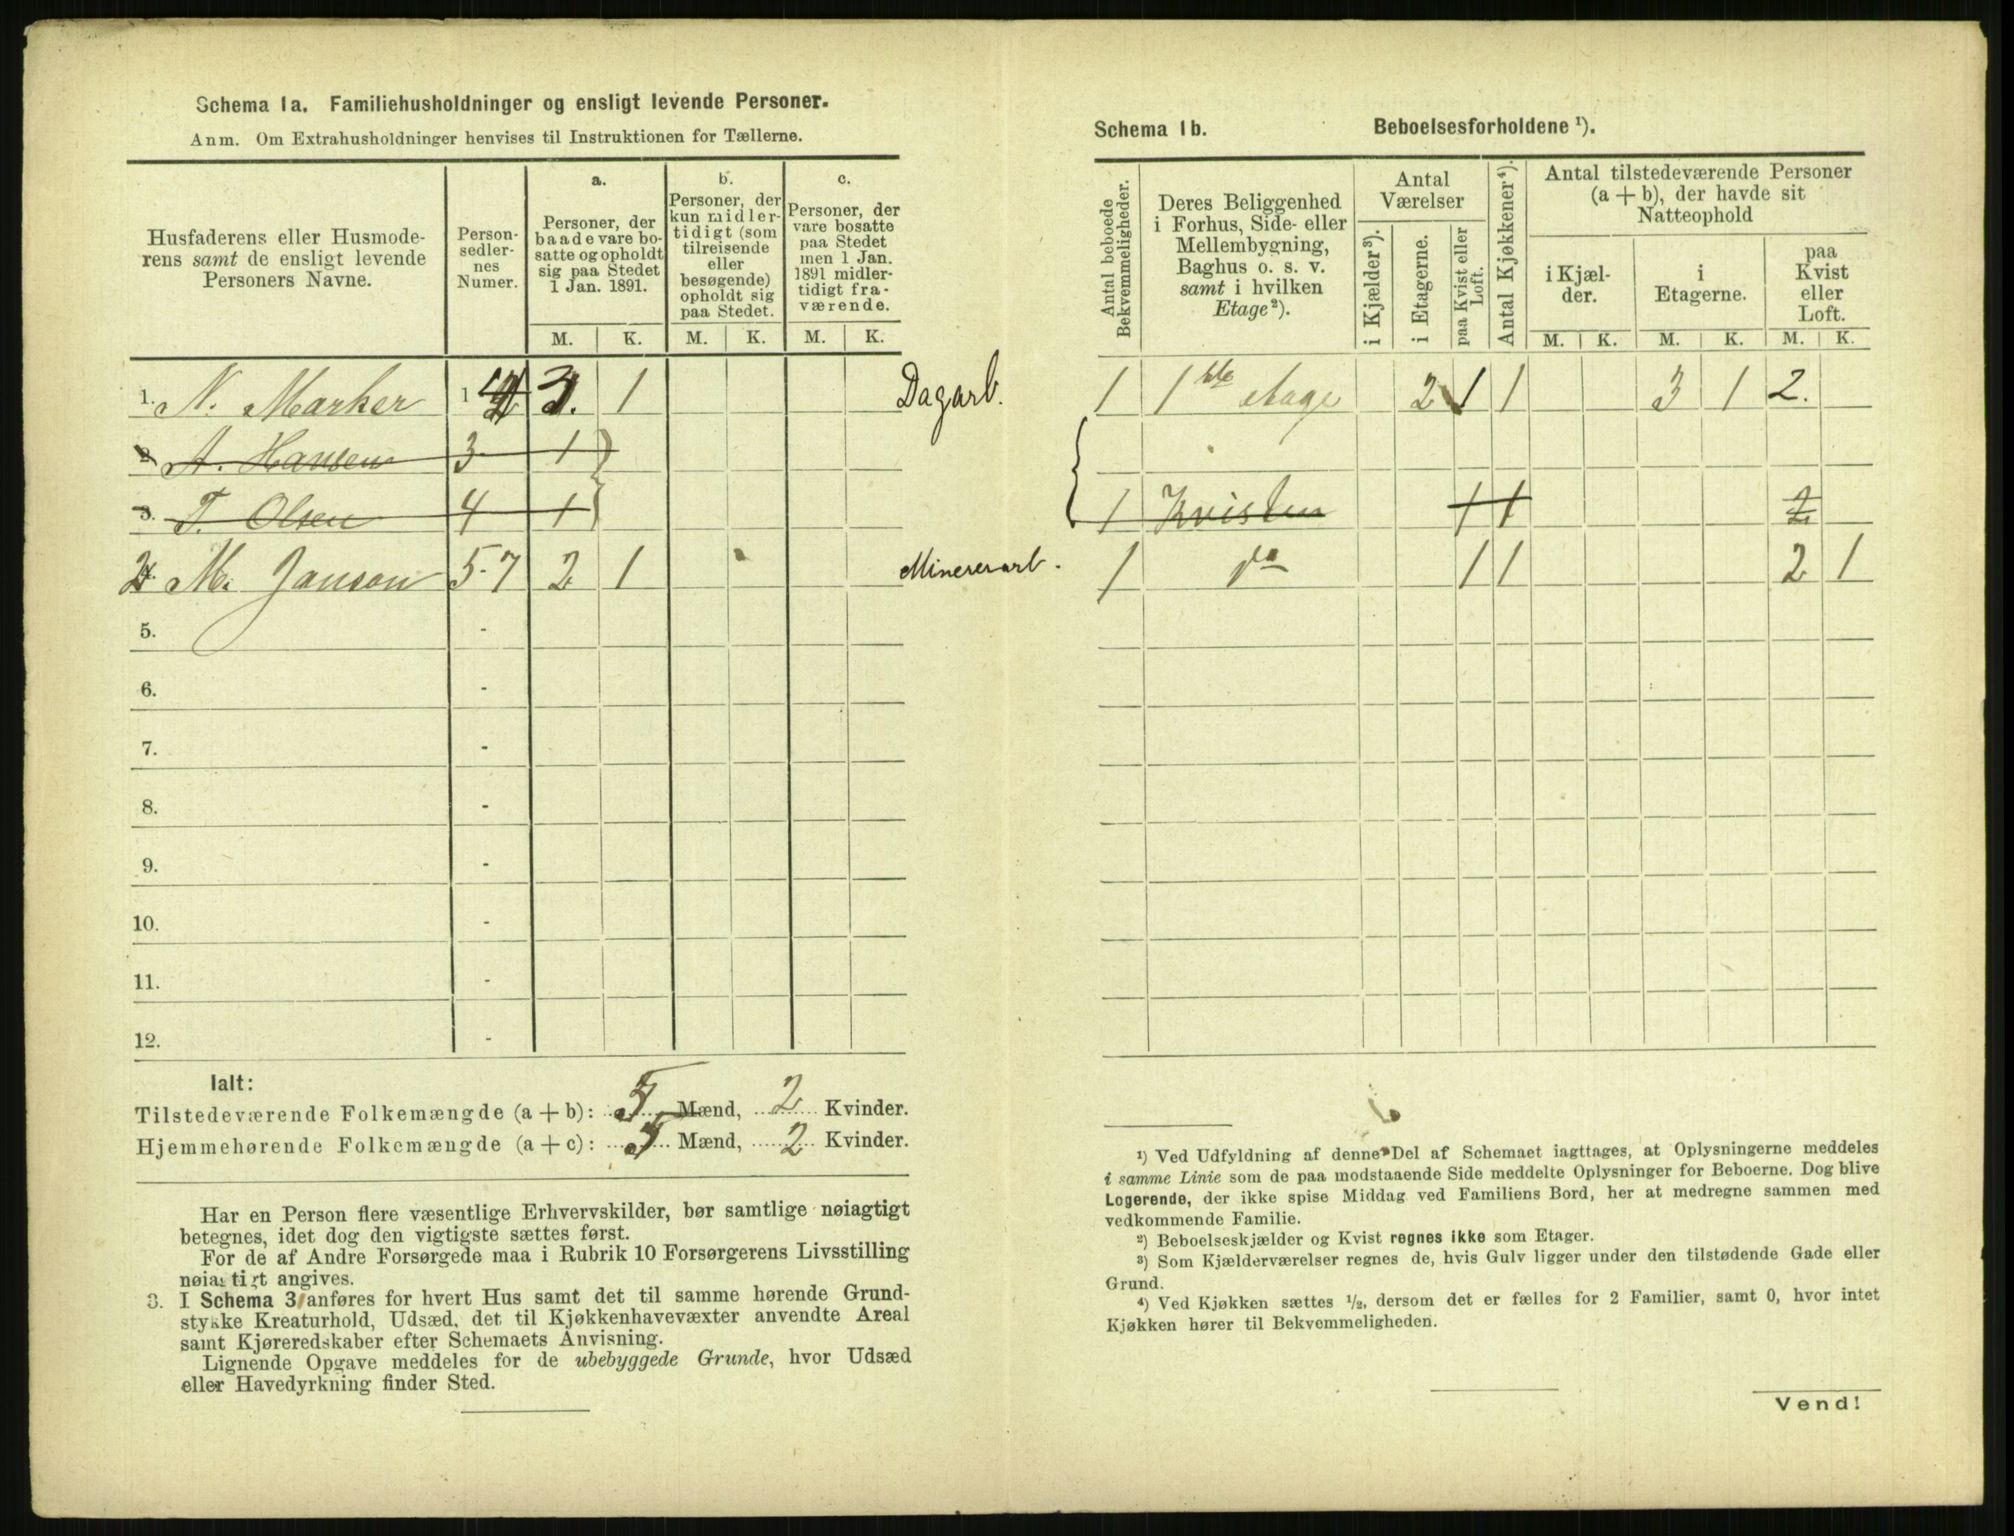 Schema 1a. Familiehusholdninger og ensligt levende Personer.
Anm. Om Extrahusholdninger henvises til Instruktionen for Tællerne.
Husfaderens eller Husmoderens samt de ensligt levende Personers Navne.
Personsedlernes Numer.
a. Personer, der baade vare bosatte og opholdt sig paa Stedet 1 Jan. 1891.
b. Personer, der kun midlertidigt (som tilreisende eller besøgende) opholdt sig paa Stedet.
c. Personer, der vare bosatte paa Stedet men 1 Jan. 1891 midlertidigt fraværende.
M. K. M. K. M. K.
1. N. Marker 1 4 3 1 Dagarb.
2 A. Hansen 3 1
3. T. Olsen 4 1
2 M. Janson 5-7 2 1 Minererarb.
5. -
6. -
7. -
8. -
9. -
10. -
11. -
12. -
Ialt:
Tilstedeværende Folkemængde (a + b): 5 Mænd, 2 Kvinder.
Hjemmehørende Folkemængde (a + c): 5 Mænd, 2 Kvinder.
Har en Person flere væsentlige Erhvervskilder, bør samtlige nøiagtigt
betegnes, idet dog den vigtigste sættes først.
For de af Andre Forsørgede maa i Rubrik 10 Forsørgerens Livsstilling
nøiagtigt angives.
3. I Schema 3 anføres for hvert Hus samt det til samme hørende Grund-
stykke Kreaturhold, Udsæd, det til Kjøkkenhavevæxter anvendte Areal
samt Kjøreredskaber efter Schemaets Anvisning.
Lignende Opgave meddeles for de ubebyggede Grunde, hvor Udsæd
eller Havedyrkning finder Sted.
Schema 1b. Beboelsesforholdene ¹).
Antal beboede Bekvemmeligheder.
Deres Beliggenhed i Forhus, Side- eller Mellembygning, Baghus o. s. v. samt i hvilken Etage²).
Antal Værelser
i Kjælder³).
i Etagerne.
paa Kvist eller Loft.
Antal Kjøkkener⁴).
Antal tilstedeværende Personer (a + b), der havde sit Natteophold
i Kjælder.
i Etagerne.
paa Kvist eller Loft.
M. K. M. K. M. K.
1 1ste Etage 2 1 1 3 1 2.
1 Kvisten 1 1 2
1 do 1 1 2 1
¹) Ved Udfyldning af denne Del af Schemaet iagttages, at Oplysningerne meddeles
i samme Linie som de paa modstaaende Side meddelte Oplysninger for Beboerne. Dog blive
Logerende, der ikke spise Middag ved Familiens Bord, her at medregne sammen med
vedkommende Familie.
²) Beboelseskjælder og Kvist regnes ikke som Etager.
³) Som Kjælderværelser regnes de, hvis Gulv ligger under den tilstødende Gade eller
Grund.
⁴) Ved Kjøkken sættes ½, dersom det er fælles for 2 Familier, samt 0, hvor intet
Kjøkken hører til Bekvemmeligheden.
Vend!